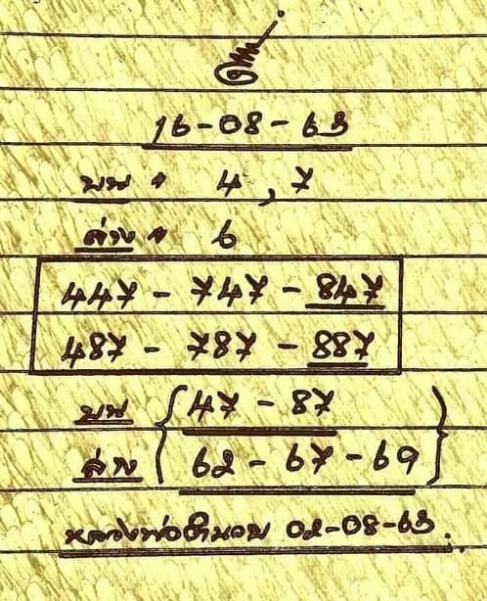 16-08-63
บน " 4, 7
ล่าง " 6
447 - 747 - 847
487 - 787 - 887
บน 47 - 87
ล่าง 62 - 67 - 69
หลวงพ่อ 02-08-63